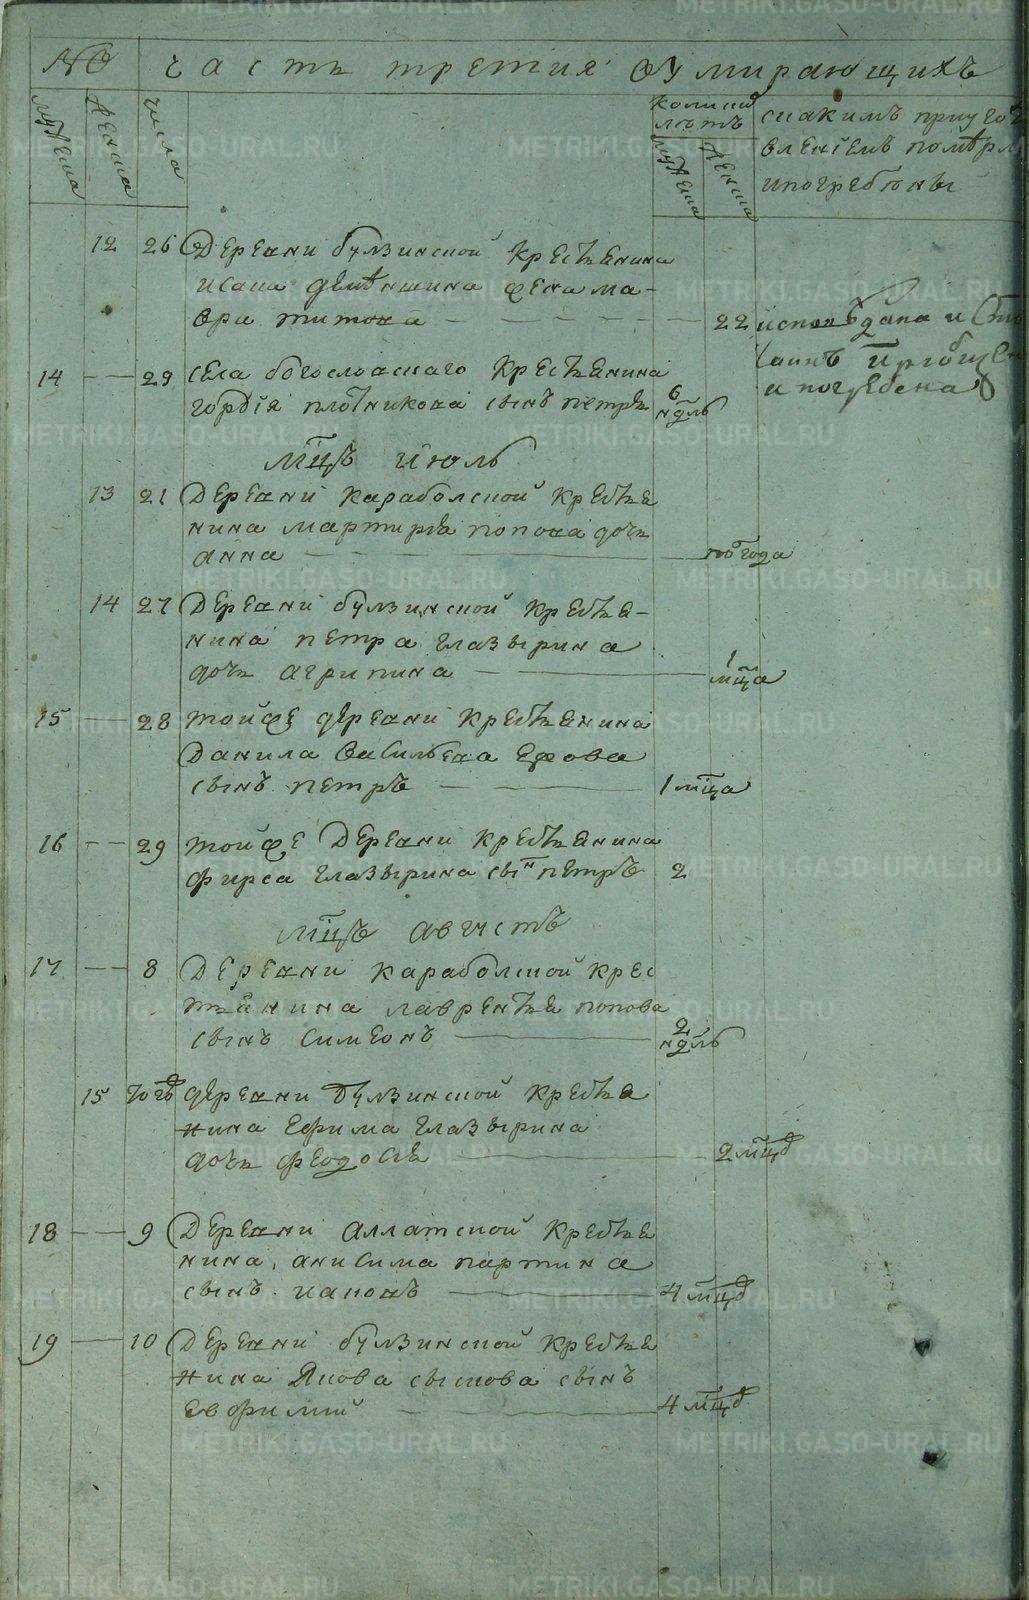 № Часть третия о умирающихъ
мужеска
женска
числа
колики
лѣтъ
мужеска
женска
снакимъ приуго
вленiемъ помѣрл
ипогребѣны
12 26 Деревни булзинской крестьянина
жена ма-
вра титова 22 исповѣдана и
14 29 села богословскаго крестьянина
гордѣя плотникова сынъ петръ 6 ндль
и погребена
мцъ июль
13 21 Деревни караболской крестья
нина мартирiя попова дочь
анна полгода
14 27 Деревни булзинской крестья-
нина петра глазырина
дочь агрипина 1 мца
15 28 тойже деревни крестьянина
Данила Васильева Ежова
сынъ петръ 1 мца
16 29 тойже Деревни крестьянина
фирса глазырина сынъ петръ 2
мцъ августъ
17 8 Деревни караболской крес
тьянина лаврентья попова
сынъ Симеонъ 2 ндль
15 того деревни булзинской крестья
нина Ефима глазырина
дочь феодосья 2 мцо
18 9 Деревни аллатской крестья
нина анисима партина
сынъ иаковъ 4 мцо
19 10 Деревни булзинской крестья
нина Якова сыскова сынъ
Евфимий 4 мцо
METRIKI.GASO-URAL.RU